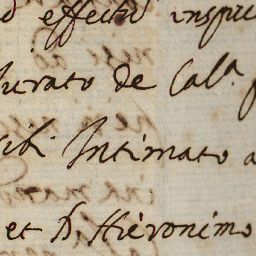 effectu inspic
Jurato de Cala
sibi Intimato a
et D. Hieronimo